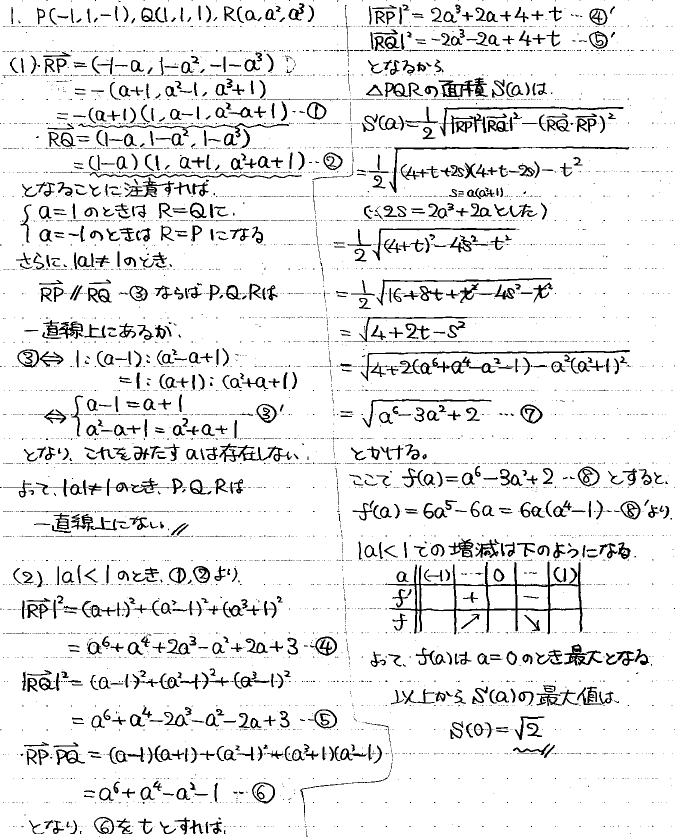 1. P(-1,1,-1), Q(1,1,1), R(a,a²,a³)
(1)・RP→=(-1-a, 1-a², -1-a³)
=-(a+1, a²-1, a³+1)
=-(a+1)(1, a-1, a²-a+1)…①
・RQ→=(1-a, 1-a², 1-a³)
=(1-a)(1, a+1, a²+a+1)…②
となることに注意すれば、
{ a=1のときは R=Qに、
a=-1のときは R=Pになる
さらに、|a|≠1のとき、
RP→ // RQ→ …③ ならば P,Q,Rは
一直線上にあるが、
③⇔ 1:(a-1):(a²-a+1)
=1:(a+1):(a²+a+1)
⇔ { a-1=a+1
a²-a+1=a²+a+1 …③'
となり、これをみたすaは存在しない。
よって、|a|≠1のとき、P,Q,Rは
一直線上にない。//
(2) |a|<1のとき、①,②より
|RP→|²=(a+1)²+(a²-1)²+(a³+1)²
=a⁶+a⁴+2a³-a²+2a+3…④
|RQ→|²=(a-1)²+(a²-1)²+(a³-1)²
=a⁶+a⁴-2a³-a²-2a+3…⑤
・RP→・PQ→=(a-1)(a+1)+(a²-1)²+(a³+1)(a³-1)
=a⁶+a⁴-a²-1…⑥
となり、⑥をtとすれば、
|RP→|²=2a³+2a+4+t…④'
|RQ→|²=-2a³-2a+4+t…⑤'
となるから
△PQRの面積S(a)は、
S(a)=1/2√(|RP→|²|RQ→|²-(RQ→・RP→)²)
=1/2√((4+t+2s)(4+t-2s)-t²)
s=a(a²+1)
(∵2s=2a³+2aとした)
=1/2√((4+t)²-4s²-t²)
=1/2√(16+8t+t²-4s²-t²)
=√(4+2t-s²)
=√(4+2(a⁶+a⁴-a²-1)-a²(a²+1)²)
=√(a⁶-3a²+2)…⑦
とかける。
ここで f(a)=a⁶-3a²+2…⑧とすると、
f'(a)=6a⁵-6a=6a(a⁴-1)…⑧'より
|a|<1での増減は下のようになる
a (-1) … 0 … (1)
f' + -
f ↗ ↘
よって、f(a)はa=0のとき最大となる
以上から S(a)の最大値は、
S(0)=√2 //